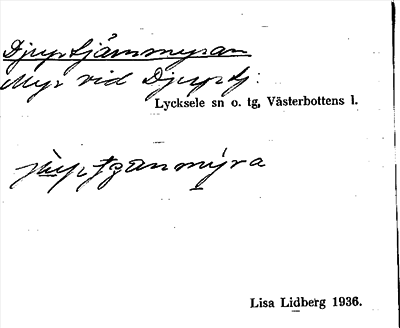 Djuptjärnmyran
Myr vid Djuptj:
Lycksele sn o. tg, Västerbottens l.
Lisa Lidberg 1936.